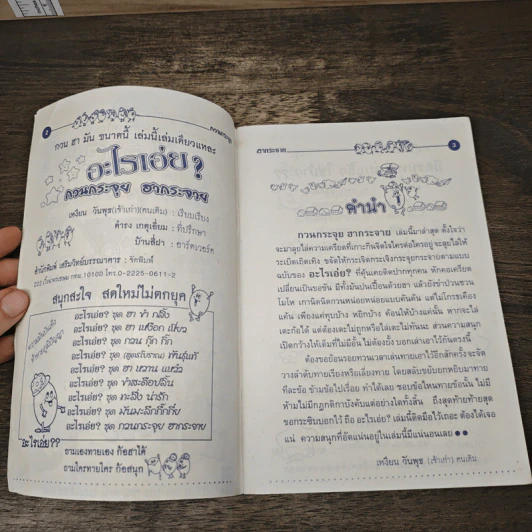 2
กวนกระจุย
กวน ฮา มัน ขนาดนี้ เล่มนี้เล่มเดียวแหละ
อะไรเอ่ย?
กวนกระจุย ฮากระจาย
เหงียน วันพุธ(เช้าเก่า)(คนเดิม) : เรียบเรียง
ดำรง เกตุเอี่ยม : ที่ปรึกษา
บ้านสี่ฝา : อาร์ตเวอร์ค
สำนักพิมพ์ เสริมวิทย์บรรณาคาร : จัดพิมพ์
กทม.10100 โทร.0-2225-0611-2
สนุกสะใจ สดใหม่ไม่ตกยุค
อะไรเอ่ย? ชุด ฮา ขำ กลิ้ง
อะไรเอ่ย? ชุด ฮา
อะไรเอ่ย? ชุด กวน กุ๊ก กิ๊ก
อะไรเอ่ย? ชุด พันธุ์แท้
อะไรเอ่ย? ชุด ฮา หวาน แหวว
อะไรเอ่ย? ชุด
อะไรเอ่ย? ชุด ทะลึ่ง น่ารัก
อะไรเอ่ย? ชุด
อะไรเอ่ย? ชุด กวนกระจุย ฮากระจาย
อะไรเอ่ย??
ถามเองทายเอง ก็ฮาได้
ถามใครทายใคร ก็สนุก
ฮากระจาย
3
คำนำ
กวนกระจุย ฮากระจาย เล่มนี้มาล่าสุด ตั้งใจว่า
จะมาลุยไล่ความเครียดที่เกาะกินจิตใจใครต่อใครอยู่ จะลุยไล่ให้
ระเบิดเถิดเทิง ขจัดให้กระเจิดกระเจิงกระจุยกระจายตามแบบ
ฉบับของ อะไรเอ่ย? ที่คุ้นเคยติดปากทุกคน หักคอเครียด
เปลี่ยนเป็นขบขัน มีทั้งมันปนเปื้อนด้วยฮา แล้วยังขำป่วนชวน
โมโห เกานิดนิดกวนหน่อยหน่อยแบบคันคัน แต่ไม่โกรธเคือง
แค้น เพียงแค่ทุบบ้าง หยิกบ้าง ค้อนให้บ้างแค่นั้น หากจะไล่
เตะก้อได้ แต่ต้องเตะไม่ถูกหรือไล่เตะไม่ทันนะ ส่วนความสนุก
เปิดกว้างให้เต็มที่ไม่มีอั้น ไม่ต้องรั้ง บอกเล่าเอาไว้กันตรงนี้
ต้องขอย้อนรอยทวนเวลาเล่นทายเอาไว้อีกสักครั้งจะจัด
วางลำดับทายเรียงหรือเลี่ยงทาย โดยสลับขยับยกหยิบมาทาย
ทีละข้อ ข้ามข้อไปเรื่อย ทำได้เลย ชอบข้อไหนทายข้อนั้น ไม่มี
ห้ามไม่มีกฎกติกาบังคับแต่อย่างใดทั้งสิ้น ถึงสุดท้ายท้ายสุด
ขอกระซิบบอกไว้ ถือ อะไรเอ่ย? เล่มนี้ติดมือไว้เถอะ ต้องได้เจอ
แน่ ความสนุกที่อัดแน่นอยู่ในเล่มนี้แน่นอนเลย
เหงียน วันพุธ (เช้าเก่า) คนเดิม